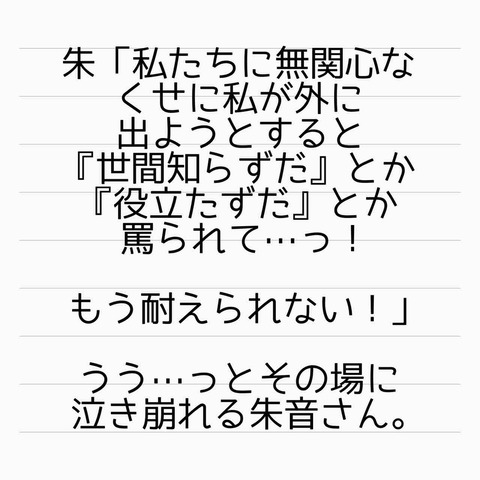 朱「私たちに無関心な
くせに私が外に
出ようとすると
『世間知らずだ』とか
『役立たずだ』とか
罵られて…っ！
もう耐えられない！」
うう…っとその場に
泣き崩れる朱音さん。